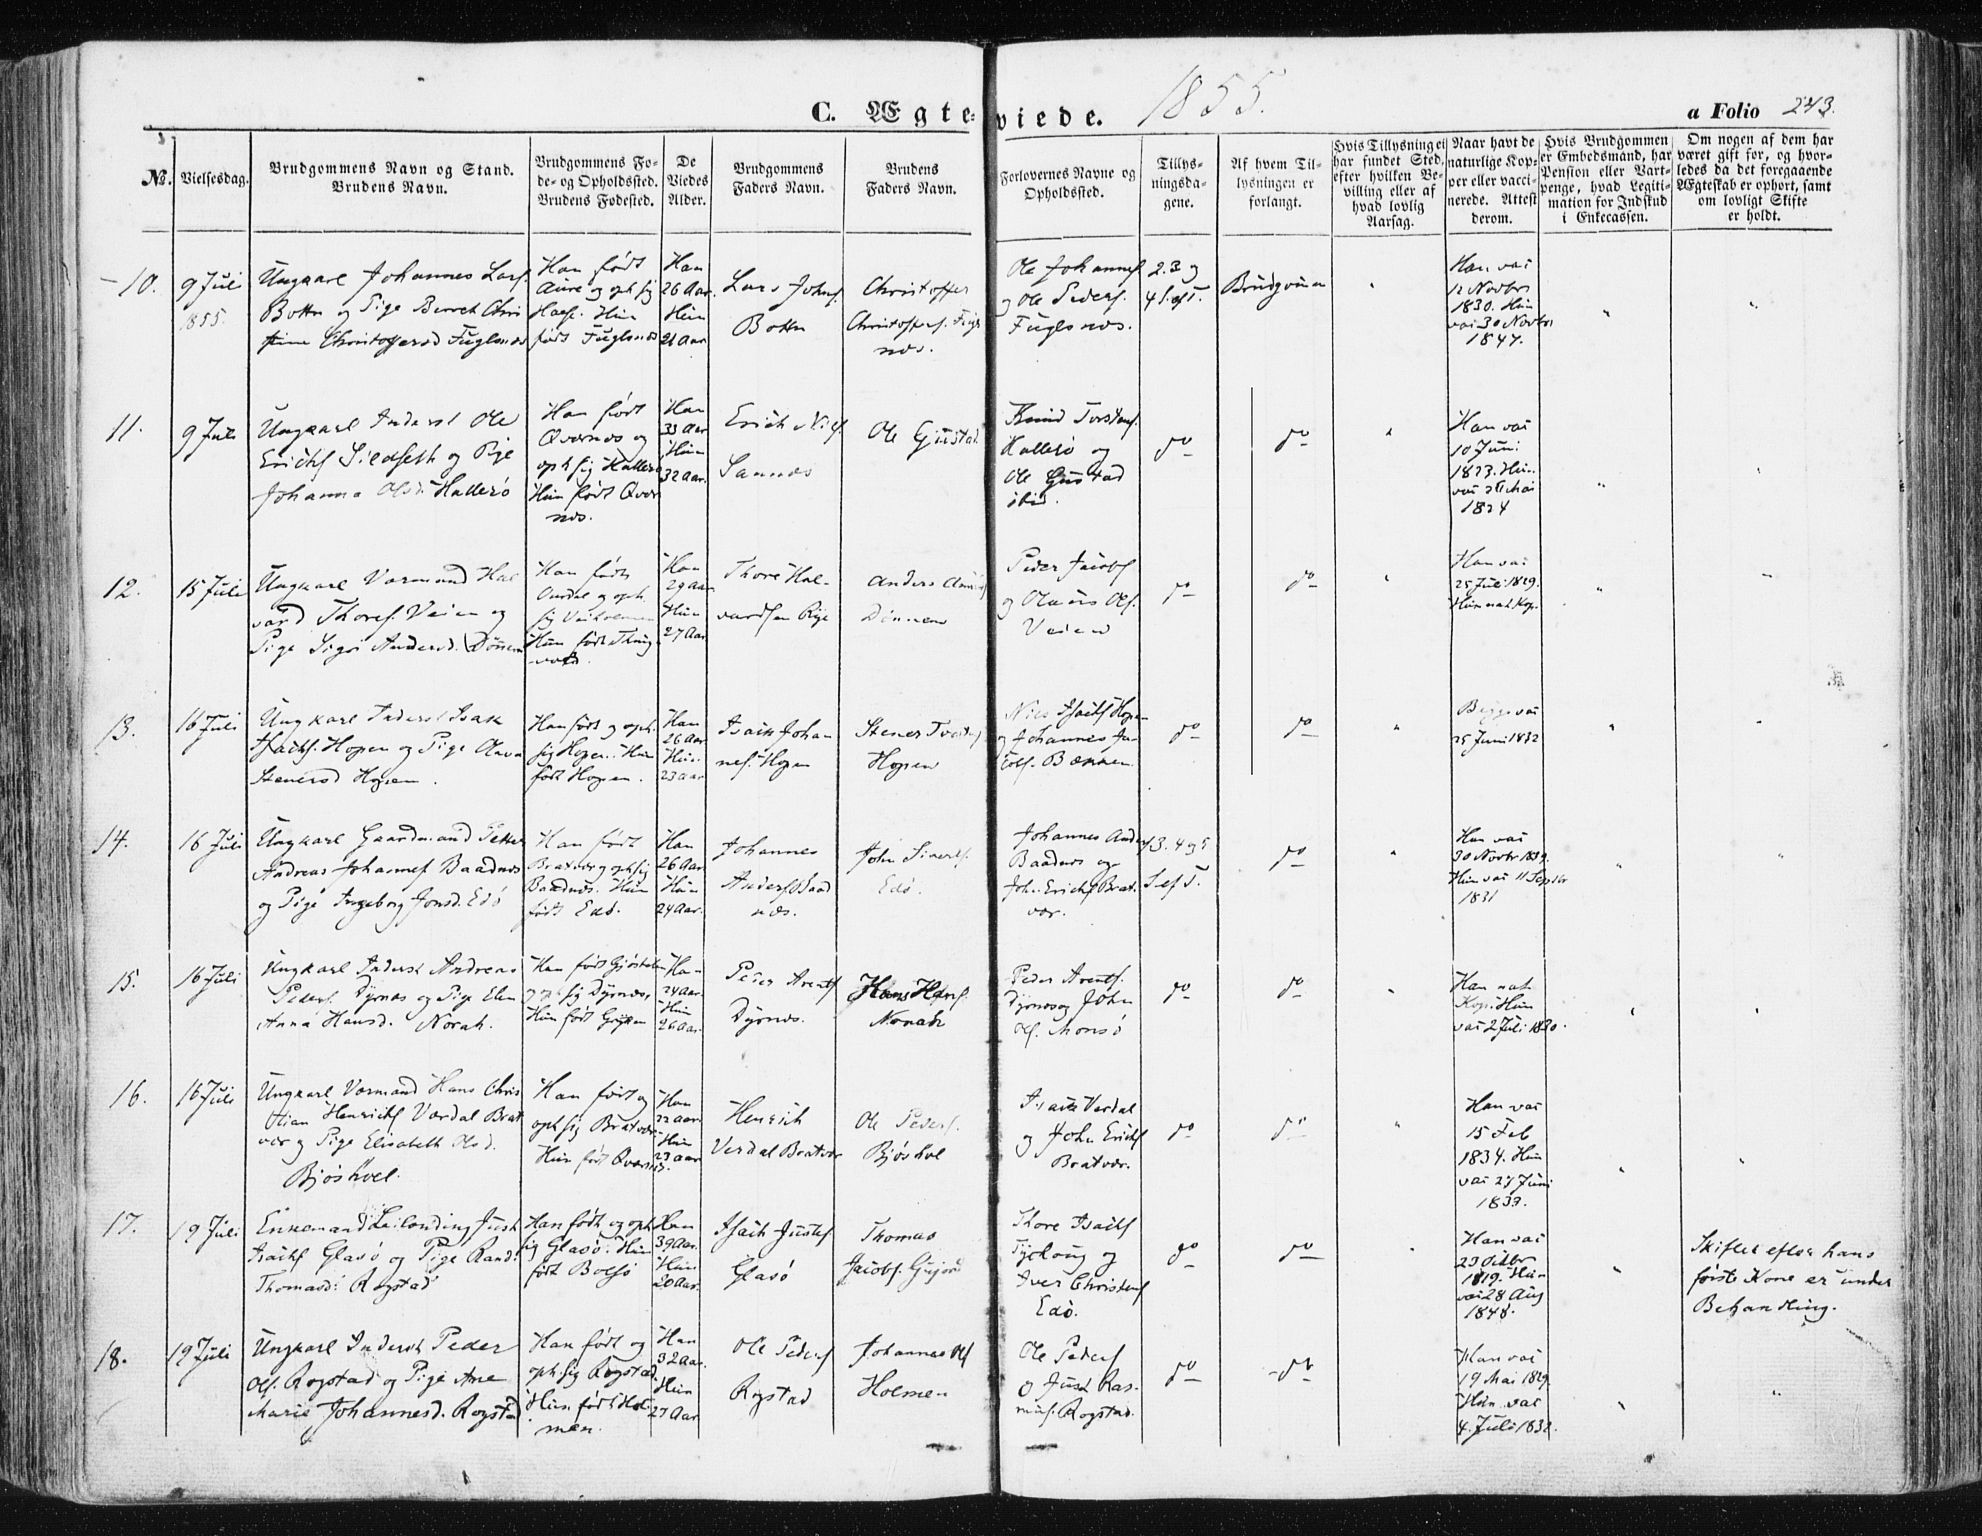 C. Ægteviede. 1855. a Folio 243.
№.
Vielsesdag.
Brudgommens Navn og Stand.
Brudens Navn.
Brudgommens Fø-
de- og Opholdssted.
Brudens Fødested.
De
Viedes
Alder.
Brudgommens
Faders Navn.
Brudens
Faders Navn.
Forlovernes Navne og
Opholdssted.
Tillys-
ningsda-
gene.
Af hvem Til-
lysningen er
forlangt.
Hvis Tillysning ei
har fundet Sted,
efter hvilken Be-
villing eller af
hvad lovlig
Aarsag.
Naar havt de
naturlige Kop-
per eller vacci-
nerede. Attest
derom.
Hvis Brudgommen
er Embedsmand, har
Pension eller Vart-
penge, hvad Legiti-
mation for Indskud
i Enkecassen.
Om nogen af dem har
været gift før, og hvor-
ledes da det foregaaende
Ægteskab er ophørt, samt
om lovligt Skifte
er holdt.
10.
9 Juli
1855.
Ungkarl Johannes Lars.
Botten og Pige Berret Chri
stine Christoffersd Fuglsnæs
Han født
Aure og oph sig
Hun
født Fuglsnæs
Han
26 Aar.
Hun
21 Aar
Lars Johns.
Botten
Christoffer
Christoffers. Fugl
næs.
Ole Johannes.
og Ole Peders.
Fuglsnæs.
2. 3 og
4 S. ef T.
Brudgommen
Han vac
12 Novbr
1830. Hun
vac 30 Novbr
1847.
11.
9 Juli
Ungkarl Inderst Ole
Erichs Sildseth og Pige
Johanna Olsd. Hallersø
Han født
Qvernæs og
oph sig
Hun født Qver
næs.
Han
33 Aar
Hun
32 Aar.
Erich Nils.
Sannæs
Ole Gjustad
Knud Torstens.
og
Ole Gustad
ibid.
do
do
Han vac
10 Juni
1823. Hun
vac Mai
1824
12.
15 Juli
Ungkarl Vormand Hal
vard Thores. Veien og
Pige Sigri Andersd. Dønnem
Han født
og oph.
sig Veiholmen
Hun født Thing
vold.
Han
29 Aar
Hun
27 Aar
Thore Hal-
vardsen Rige
Anders
Dønnem
Peder Jacobs
og Olaus Ols.
Veien
do
do
Han vac
25 Juli 1829.
Hun nat. Kop.
13.
16 Juli
Ungkarl Inderst Isak
Isachs. Hopen og Pige Olava
Stenersd Hopen.
Han født og oph.
sig Hopen. Hun
født Hopen.
Han
26 Aar
Hun
23 aar
Isach Johan
nes. Hopen
Stener
Hopen
Nils Isachs Hopen
og Johannes Ja-
cobs. Bækken
do
do
Begge vac
25 Juni 1832
14.
16 Juli
Ungkarl Gaardmand Petter
Andreas Johannes Baadnæs
og Pige Ingeborg Jonsd. Edø
Han født
Bratvær og oph sig
Baadnæs. Hun
født Edø.
Han
26 Aar
Hun
24 Aar.
Johannes
Anders Baad
næs.
John Siverts.
Edø.
Johannes Anders
Baadnæs og
John Erichs Brat-
vær.
3. 4 og 5
S. ef T.
do
Han vac
30 Novbr 1839.
Hun vac 11 Septbr
1831
15.
16 Juli
Ungkarl Inderst Andreas
Peders. Dyrnæs og Pige Elen
Anna Hansd. Norah.
Han født
og oph sig Dyrnæs,
Hun født
Han
24 Aar.
Hun
26 Aar.
Peder Arents
Dyrnæs.
Hans Hans.
Norah
Peder Arents.
Dyrnæs og John
Ols. Monsø
do
do
Han nat
Kop. Hun
vac 2 Juli 1830.
16.
16 Juli
Ungkarl Vormand Hans Chris
tian Henrichs Verdal Brat
vær og Pige Elisabeth Olsd.
Bjøshoel.
Han født og
oph sig Bratvær
Hun født
Han
22 aar.
Hun
23 aar
Henrich
Verdal Bratvær
Ole Peders.
Bjøshol
Isach Verdal
og John Erichs
Bratvær.
do
do
Han vac
15 Feb
1834. Hun
vac 27 Juni
1833.
17.
19 Juli
Enkemand Leilending Just
Isachs Glasø og Pige Randi
Thomasd. Rogstad
Han født og oph
sig Glasø. Hun
født Bolsø
Han
39 Aar.
Hun
20 Aar.
Isach Justs
Glasø
Thomas
Jacobs.
Thore Isachs
og
Iver Christens
Edø.
do
do
Han vac
23 Octbr
1819. Hun
vac 28 Aug
1848.
Skiftet efter hans
første Kone er under
Behandling.
18.
19 Juli
Ungkarl Inderst Peder
Ols. Rogstad og Pige Ane
Marie Johannesd. Rogstad
Han født og
oph. sig Rogstad.
Hun født Hol
men.
Han
32 Aar.
Hun
27 Aar
Ole Peders
Rogstad
Johannes Ols
Holmen
Ole Peders
og Just Ras-
mus. Rogstad.
do
do
Han vac
19 Mai 1829.
Hun vac
4. Juli 1832.